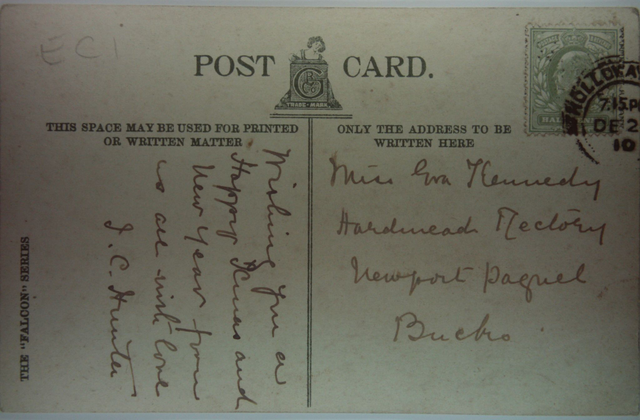 EC1
POST CARD.
G
B
Co
TRADE-MARK
THIS SPACE MAY BE USED FOR PRINTED
OR WRITTEN MATTER
ONLY THE ADDRESS TO BE
WRITTEN HERE
HOLLOWAY
7.15P
DE 2
10
HAL
Wishing you a
Happy Xmas and
New Year from
us all with love
J. C. Hunter
Miss Eva Kennedy
Hardmead Rectory
Newport Pagnel
Bucks
THE "FALCON" SERIES